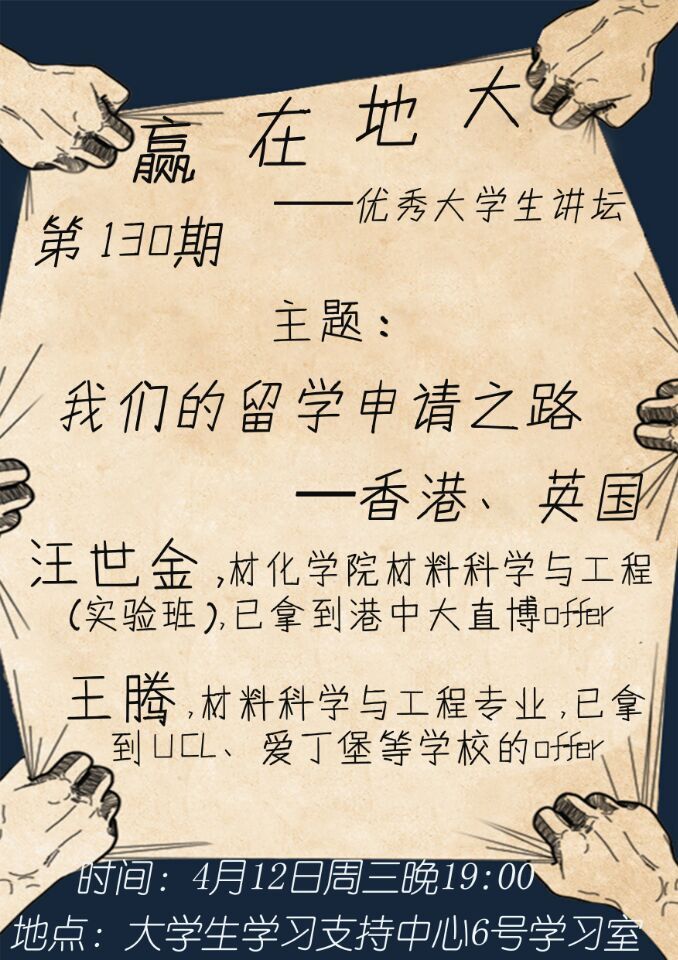 赢在地大
——优秀大学生讲坛
第130期
主题：
我们的留学申请之路
—香港、英国
汪世金,材化学院材料科学与工程
(实验班),已拿到港中大直博offer
王腾,材料科学与工程专业,已拿
到UCL、爱丁堡等学校的offer
时间：4月12日周三晚19:00
地点：大学生学习支持中心6号学习室